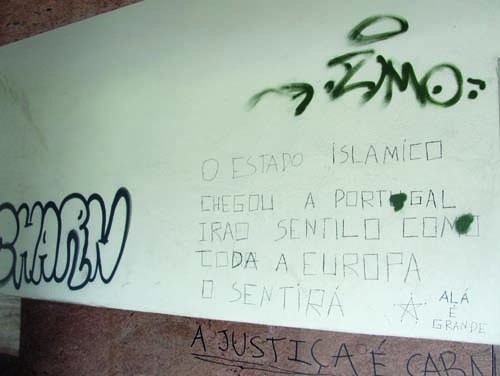 IMO
O ESTADO ISLAMICO
CHEGOU A PORTUGAL
IRAO SENTILO COMO
TODA A EUROPA
O SENTIRÁ
ALÁ
É
GRANDE
CHARN
A JUSTIÇA É CARN